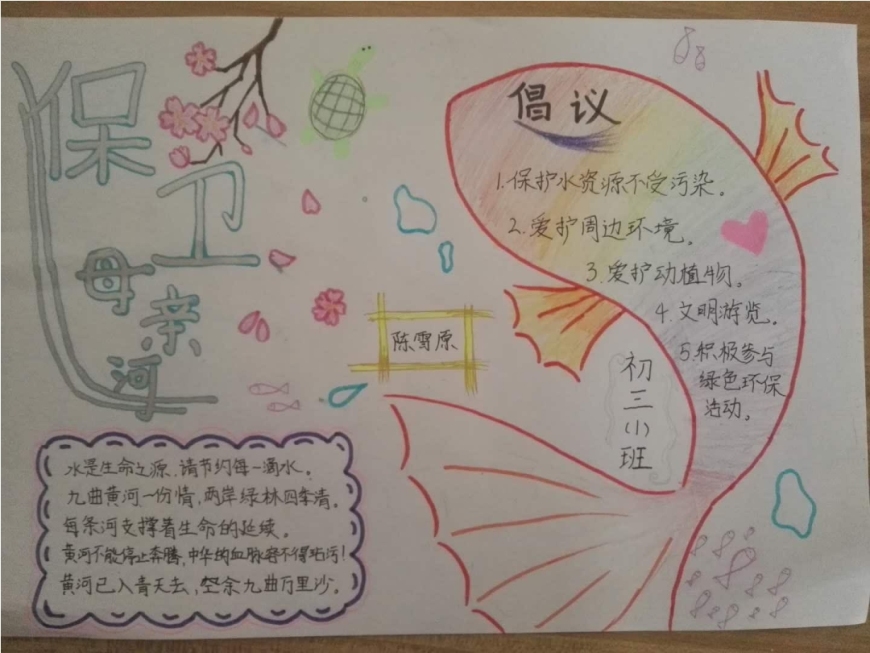 保卫
母亲河
倡议
1.保护水资源不受污染。
2.爱护周边环境。
3.爱护动植物。
4.文明游览。
5.积极参与
绿色环保
活动。
陈雪原
初三(1)班
水是生命之源,请节约每一滴水。
九曲黄河一份情,两岸绿林四季清。
每条河支撑着生命的延续。
黄河不能停止奔腾,中华的血脉容不得玷污!
黄河已入青天去,空余九曲万里沙。